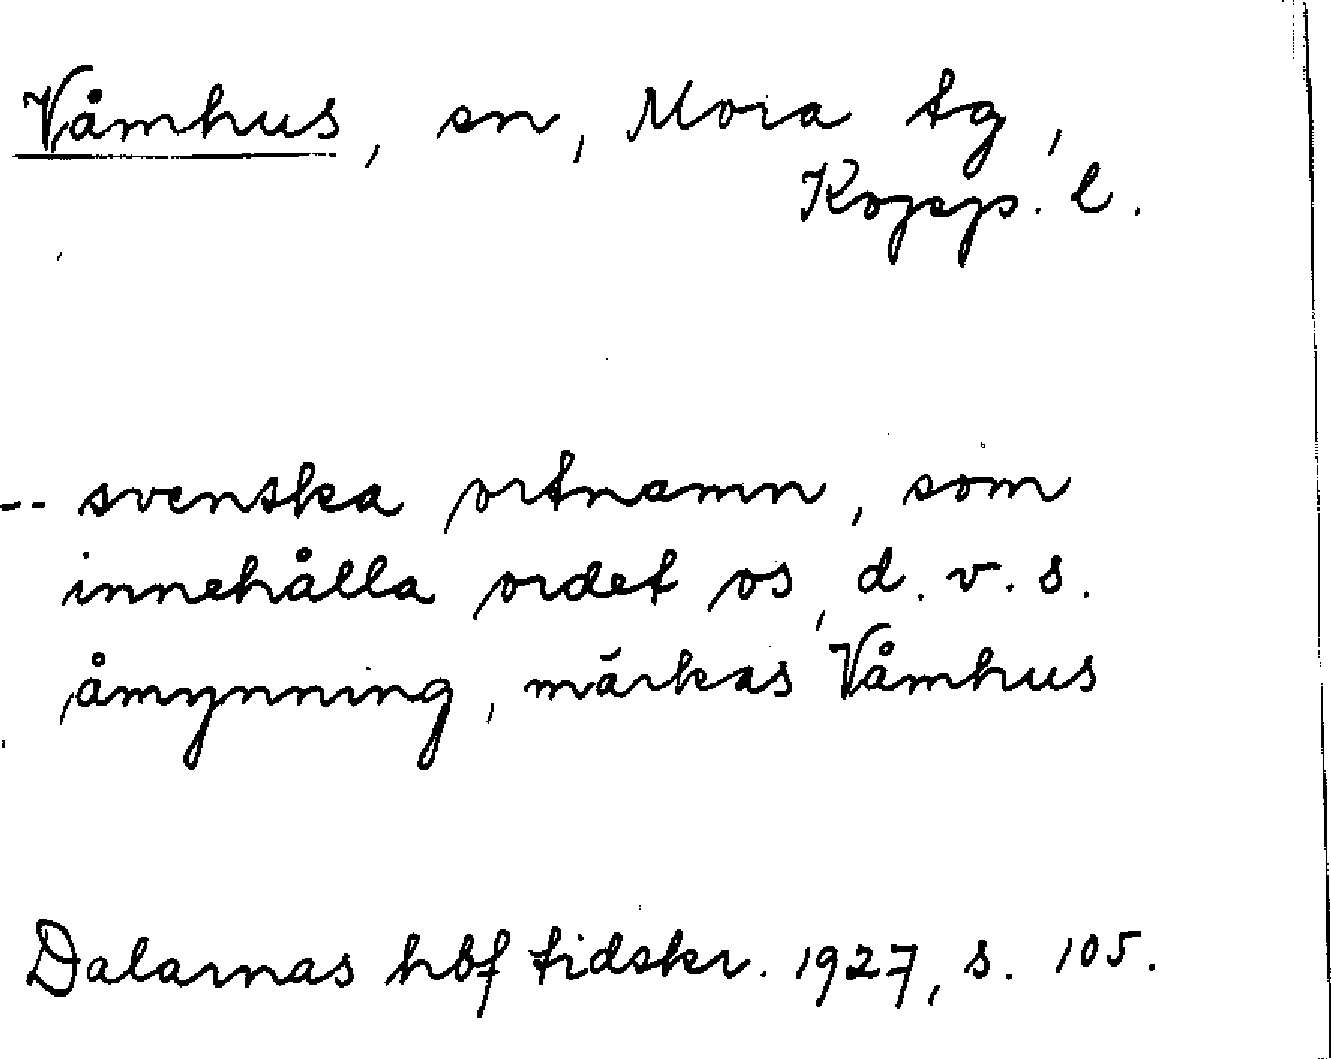 Våmhus, sn, Mora tg,
Kopp. l.
-- svenska ortnamn, som
innehålla ordet os, d.v.s.
åmynning, märkas Våmhus
Dalarnas hbf tidskr. 1927, s. 105.